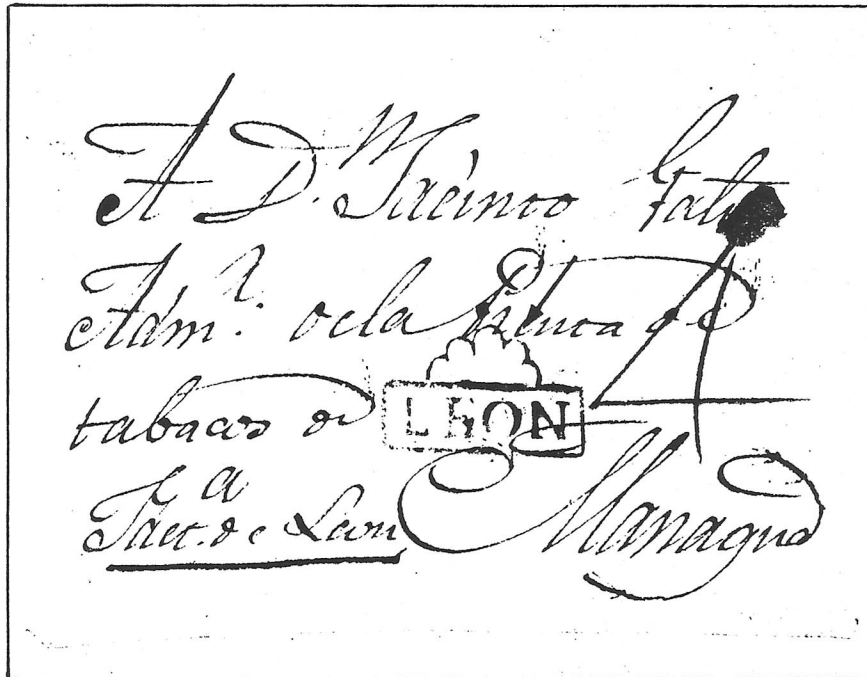 A D.n Jacinto
Adm.r dela Renta de
tabacos de LEON 4
Fact.a de Leon Managua